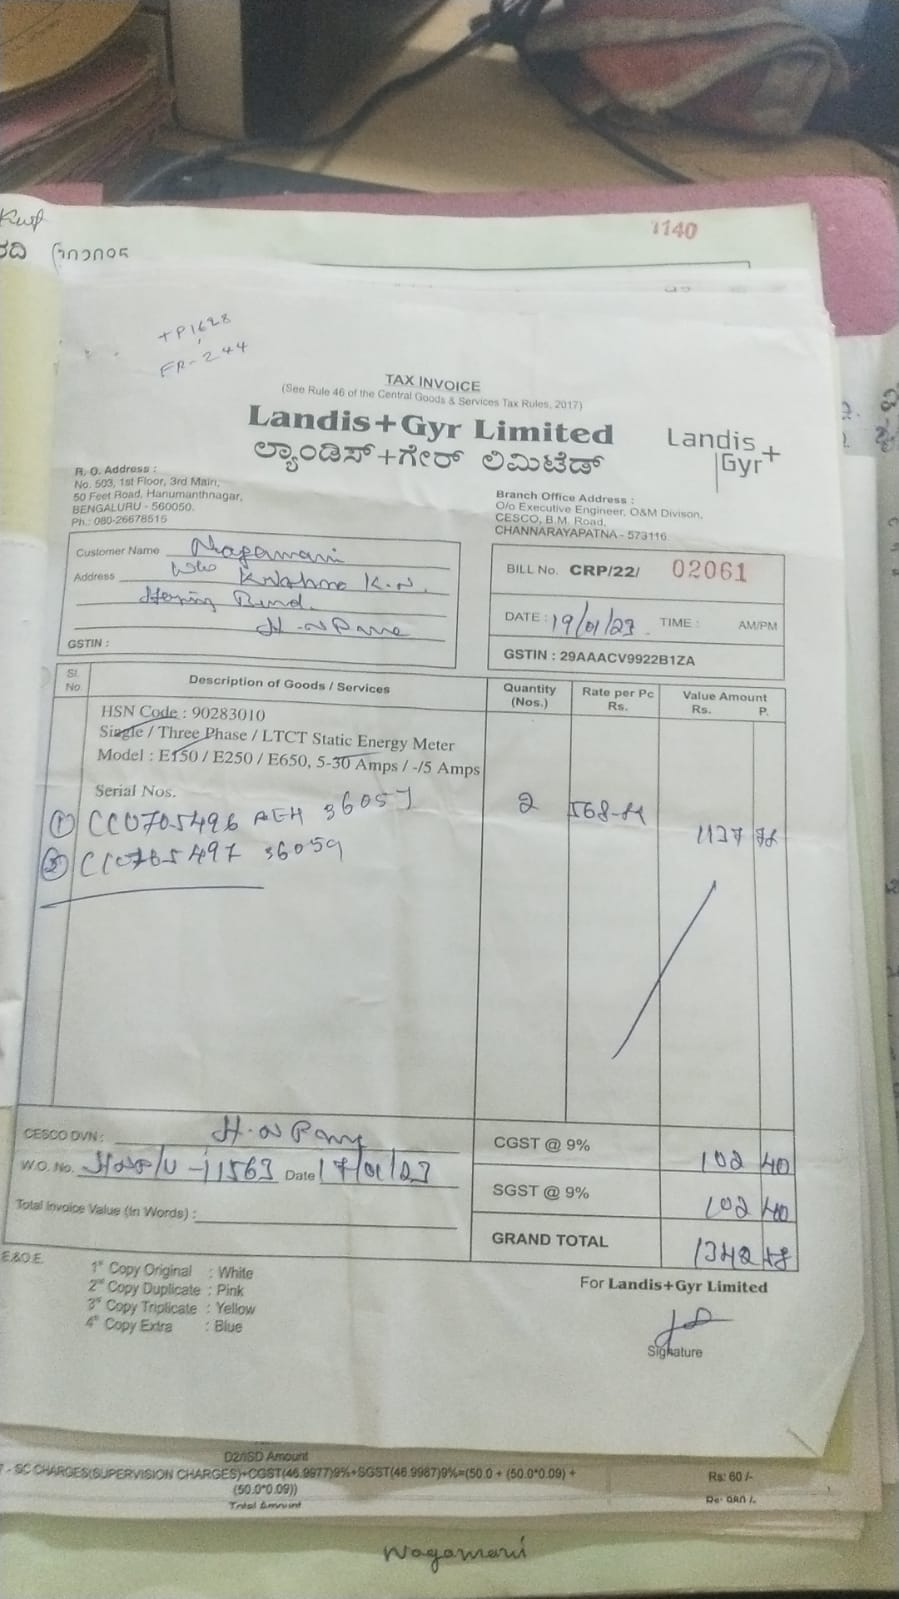 1140
TP1628
FR-244
TAX INVOICE
(See Rule 46 of the Central Goods & Services Tax Rules, 2017)
Landis+Gyr Limited
ಲ್ಯಾಂಡಿಸ್+ಗೇರ್ ಲಿಮಿಟೆಡ್
Landis+
Gyr
R. O. Address :
No. 503, 1st Floor, 3rd Main,
50 Feet Road, Hanumanthnagar,
BENGALURU - 560050.
Ph.: 080-26678515
Branch Office Address :
O/o Executive Engineer, O&M Divison,
CESCO, B.M. Road,
CHANNARAYAPATNA - 573116
Customer Name Nagamani
Address W/o Krishna K.N.
H.N Pura
GSTIN :
BILL No. CRP/22/ 02061
DATE : 19/01/23 TIME : AM/PM
GSTIN : 29AAACV9922B1ZA
Sl. No. Description of Goods / Services Quantity (Nos.) Rate per Pc Rs. Value Amount Rs. P.
HSN Code : 90283010
Single / Three Phase / LTCT Static Energy Meter
Model : E150 / E250 / E650, 5-30 Amps / -/5 Amps
Serial Nos.
① CC0705496 AEH 36057 2 568-89 1137 78
② CC0705497 36059
CESCO DVN : H.N Pura
CGST @ 9% 102 40
W.O. No. 11563 Date 17/01/23
SGST @ 9% 102 40
Total Invoice Value (In Words) :
GRAND TOTAL 1342 58
E.&O.E.
1st Copy Original : White
2nd Copy Duplicate : Pink
3rd Copy Triplicate : Yellow
4th Copy Extra : Blue
For Landis+Gyr Limited
Signature
D2/ISD Amount
7 - SC CHARGES(SUPERVISION CHARGES)+CGST(46.9977)9%+SGST(46.9987)9%=(50.0 + (50.0*0.09) + Rs: 60 /-
(50.0*0.09))
Total Amount
Nagamani